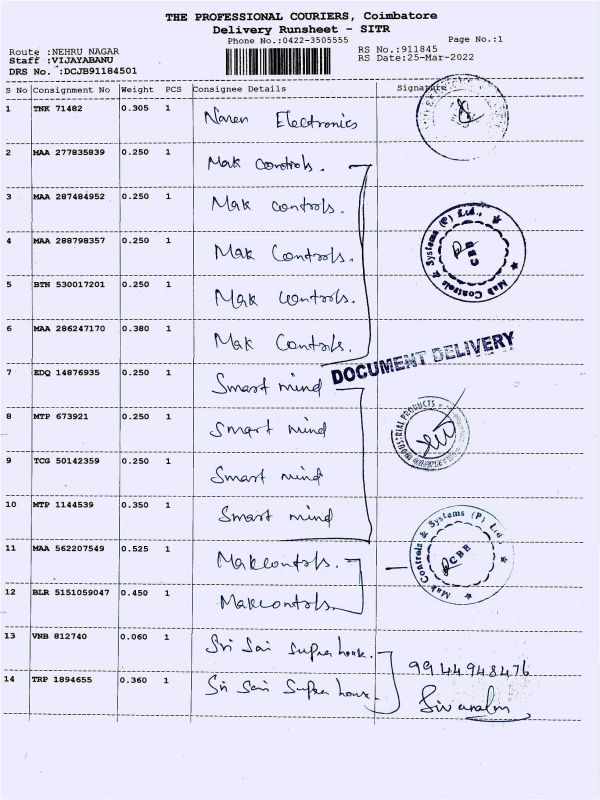 THE PROFESSIONAL COURIERS, Coimbatore
Delivery Runsheet - SITR
Phone No.:0422-3505555
Page No.:1
Route :NEHRU NAGAR
RS No.:911845
Staff :VIJAYABANU
RS Date:25-Mar-2022
DRS No. :DCJB91184501
S No Consignment No Weight PCS Consignee Details Signature
1 TNK 71482 0.305 1 Naren Electronics
2 MAA 277835839 0.250 1 Mak Controls.
3 MAA 287484952 0.250 1 Mak Controls.
4 MAA 288798357 0.250 1 Mak Controls.
Mak Controls & Systems (P) Ltd.,
5 BTN 530017201 0.250 1 Mak Controls.
6 MAA 286247170 0.380 1 Mak Controls.
DOCUMENT DELIVERY
7 EDQ 14876935 0.250 1 Smart mind
8 MTP 673921 0.250 1 Smart mind
INDUSTRIAL PRODUCTS
9 TCG 50142359 0.250 1 Smart mind
10 MTP 1144539 0.350 1 Smart mind
11 MAA 562207549 0.525 1 Mak controls.
Mak Controls & Systems (P) Ltd
CBE
12 BLR 5151059047 0.450 1 Mak controls.
13 VNB 812740 0.060 1 Sri Sai Supra house.
9944948476
14 TRP 1894655 0.360 1 Sri Sai Supra house.